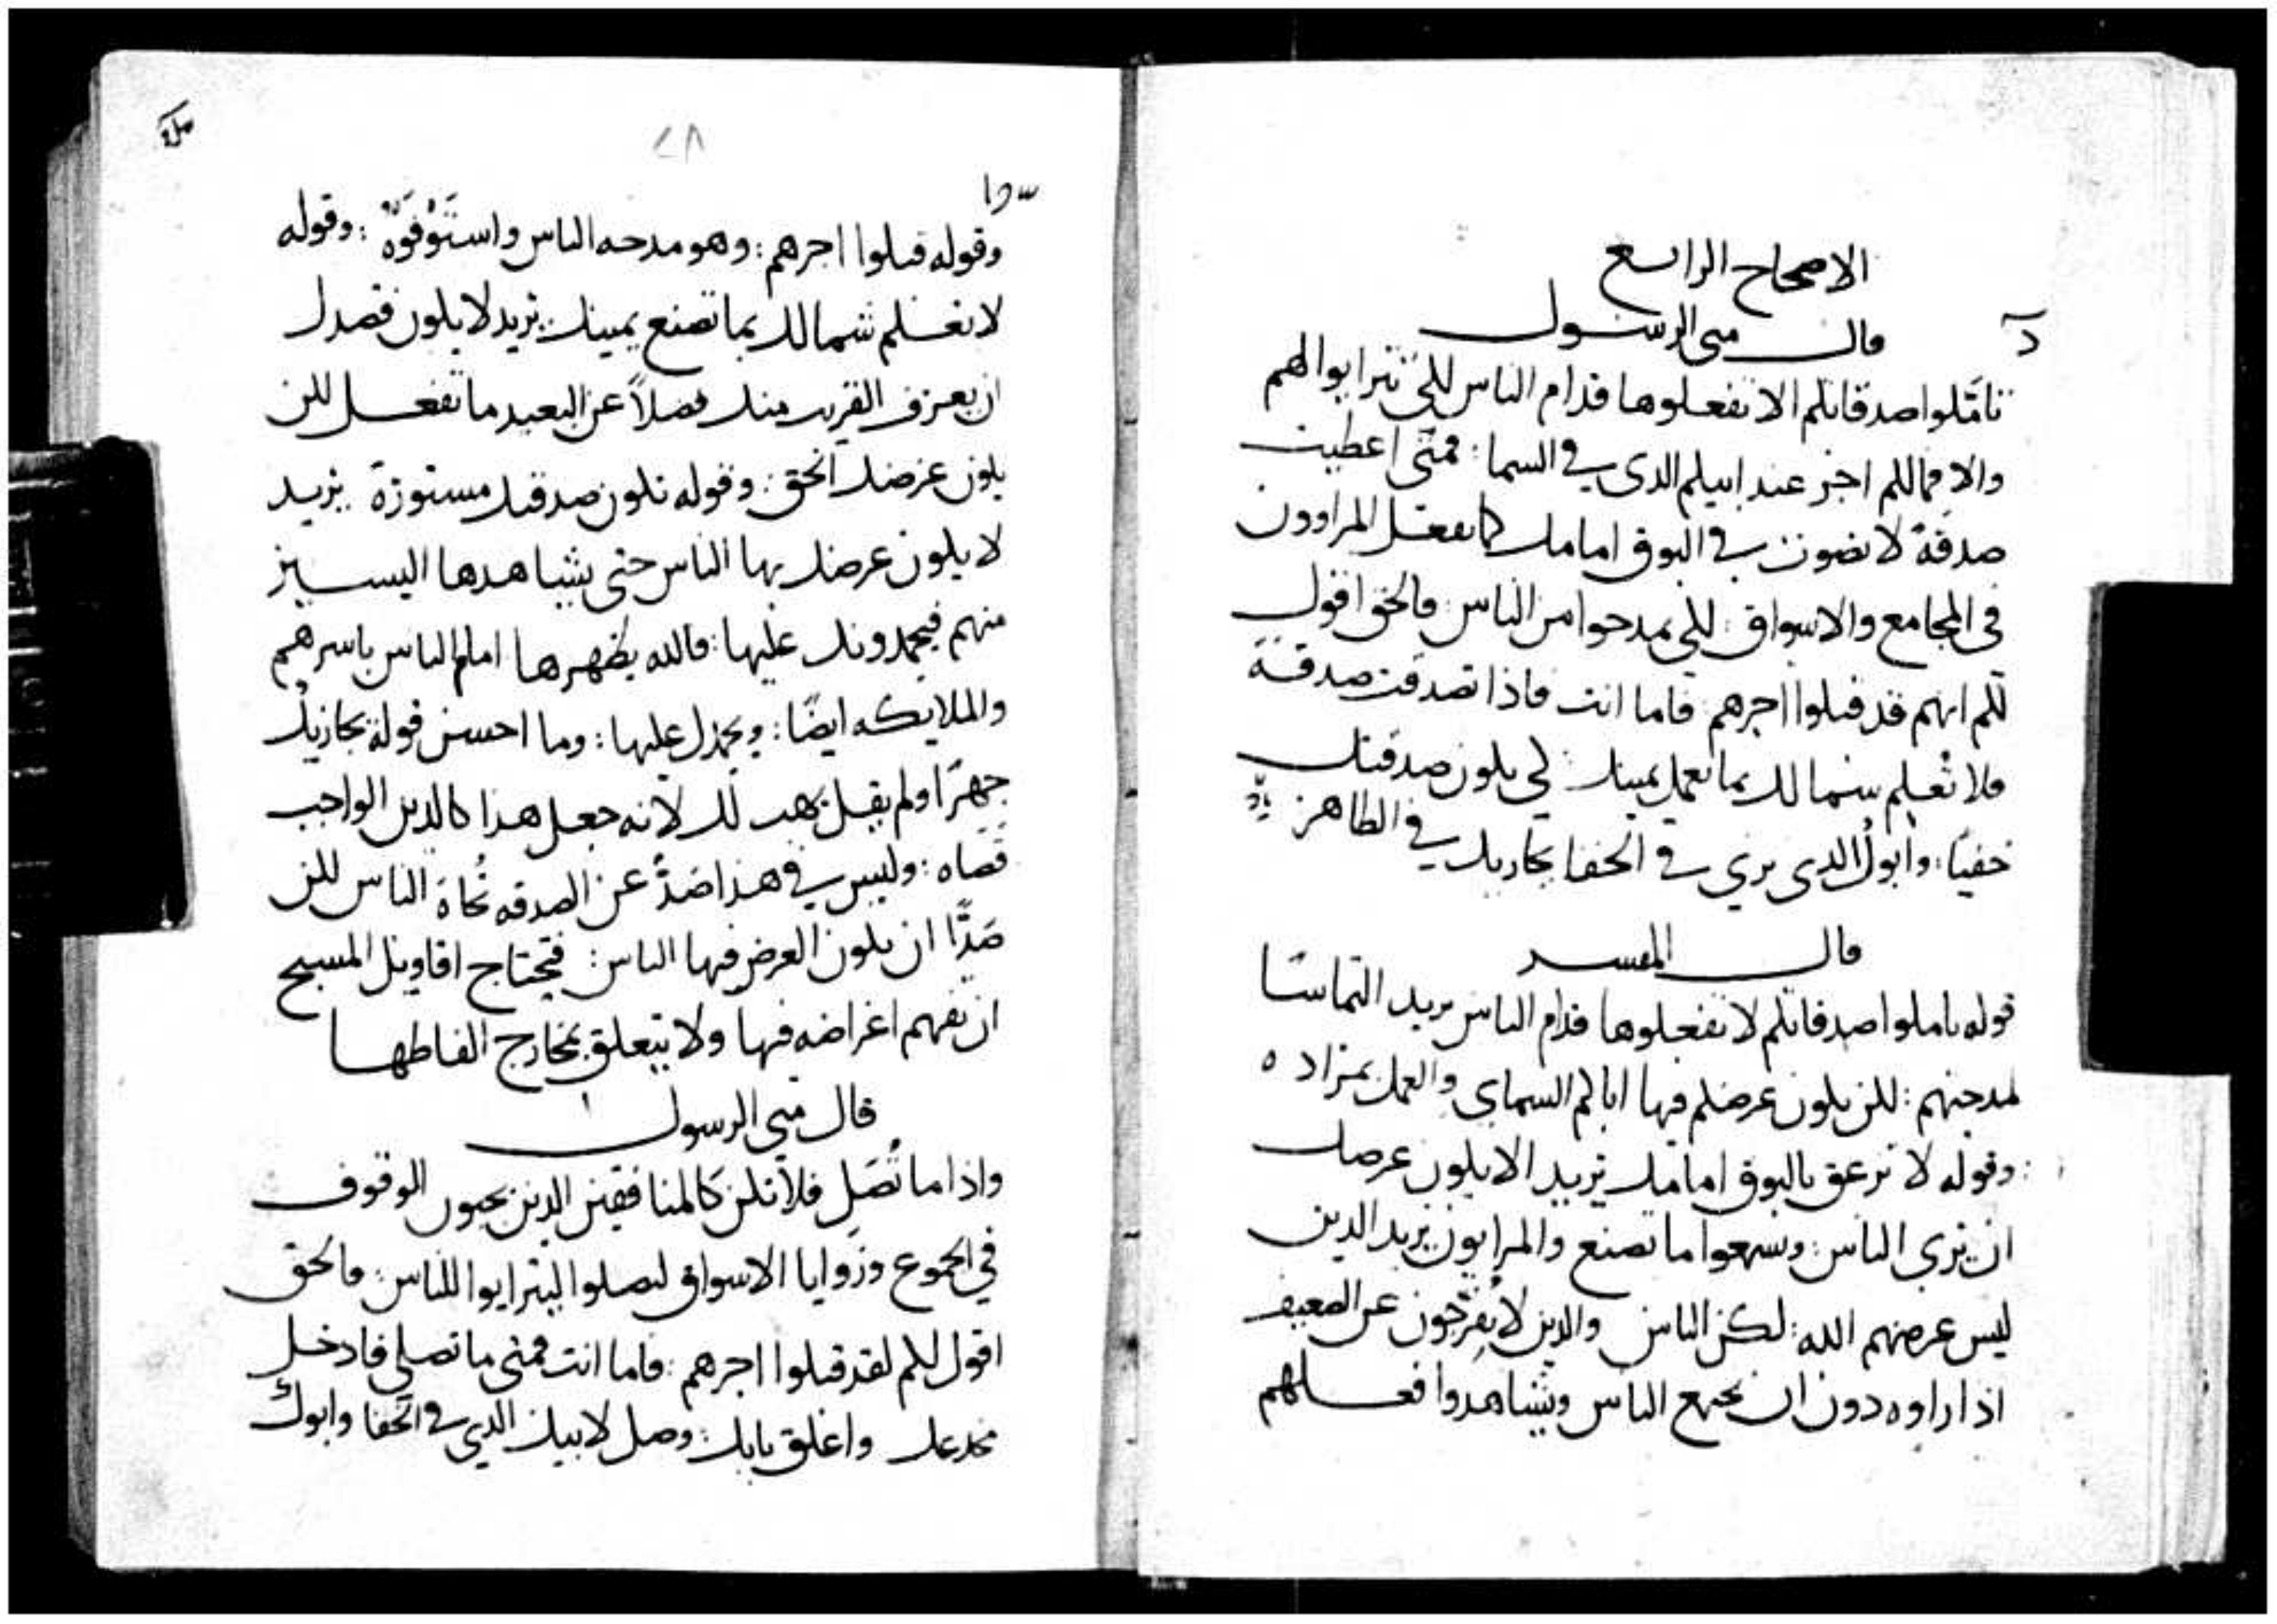 الاصحاح الرابع
قال متى الرسول
تامّلوا صدقاتكم الا تفعلوها قدام الناس لكي تترايوا لهم
والا فما لكم اجر عند ابيكم الذى في السما : فمتى اعطيت
صدقة لا تصوت في البوق امامك كما يفعل المراوون
في المجامع والاسواق : لكي يمدحوا من الناس : فالحق اقول
لكم انهم قد قبلوا اجرهم : فاما انت فاذا تصدقت صدقة
فلا تُعلم شمالك بما تعمل يمينك : لكي يكون صدقتك
خفيًا : وابوك الذى يرى في الخفا يجازيك في الظاهر
قال المفسر
قوله تاملوا صدقاتكم لا تفعلوها قدام الناس يريد التماسًا
لمدحتهم : لكن يكون غرضكم فيها اباكم السماى والعمل بمراده
: وقوله لا تزعق بالبوق امامك يريد الا يكون غرضك
ان يرى الناس : وتسمعوا ما تصنع والمرايون يريد الذين
ليس غرضهم الله : لكن الناس والذين لا يفرّجون عن الضعيف
اذا راوه دون ان يجتمع الناس ويشاهدوا فعلهم
٢٨
وقوله قبلوا اجرهم : وهو مدحه الناس واستَوْفَوْهُ : وقوله
لا تعلم شمالك بما تصنع يمينك : يريد لا يكون قصدك
ان يعرف القريب منك فضلاً عن البعيد ما تفعل لكن
يكون غرضك الحق : وقوله تكون صدقتك مستورة يريد
لا يكون غرضك بها الناس حتى يشاهدها اليسير
منهم فيحمدونك عليها : فالله يظهرها امام الناس باسرهم
والملايكه ايضًا : ويحمدك عليها : وما احسن قوله يجازيك
جهرًا ولم يقل يهب لك لانه جعل هذا كالدين الواجب
قضاه : وليس في هذا صدًّ عن الصدقه تُجاة الناس لكن
صَدًّا ان يكون الغرض فيها الناس : فيحتاج اقاويل المسيح
ان تفهم اغراضه فيها ولا يتعلق بمخارج الفاظها
قال متى الرسول
واذا ما تُصَلِ فلا تكن كالمنافقين الذين يحبون الوقوف
في الجموع وزوايا الاسواق ليصلوا ليترايوا للناس : فالحق
اقول لكم لقد قبلوا اجرهم : فاما انت فمتى ما تصلي فادخل
مخدعك واغلق بابك : وصل لابيك الذي في الخفا وابوك